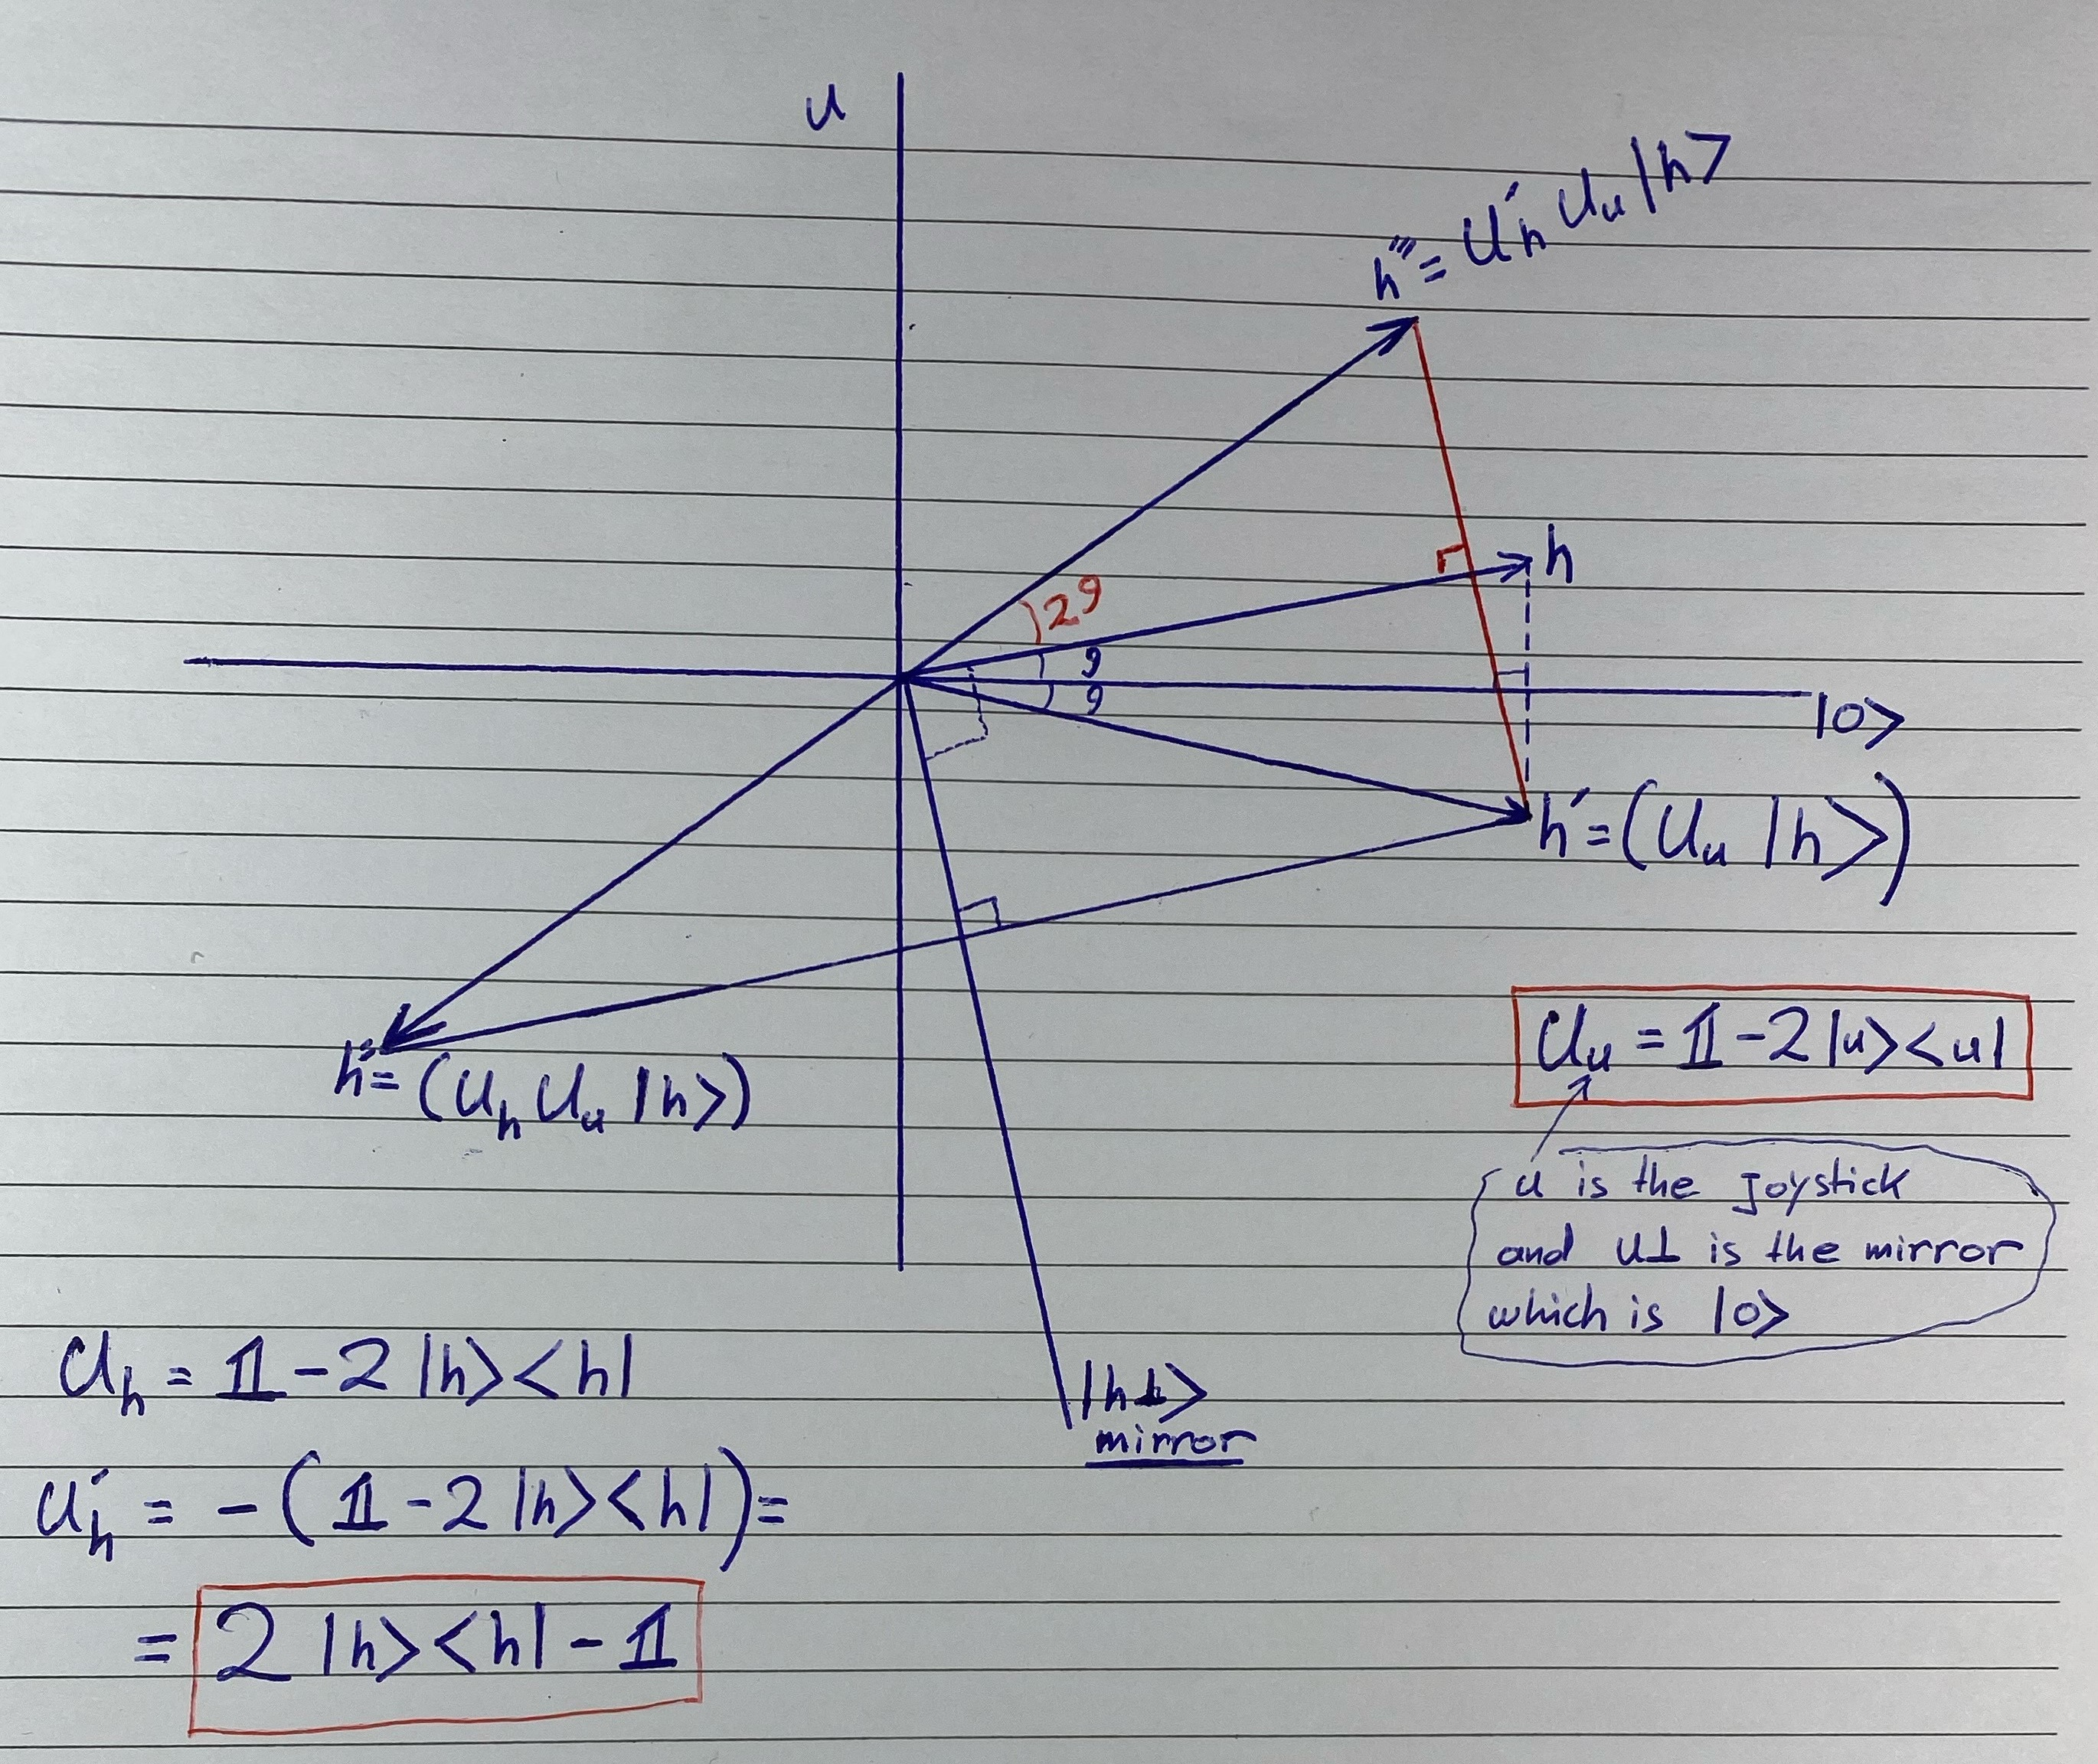 u
h‴= U′h Uu |h>
h
2ϑ
ϑ
ϑ
|0>
h′=(Uu |h>)
h″=(Uh Uu |h>)
Uu = 𝟙-2|u><u|
u is the joystick
and u⊥ is the mirror
which is |0>
Uh = 𝟙-2|h><h|
|h⊥>
mirror
U′h = -(𝟙-2|h><h|)=
= 2|h><h|-𝟙